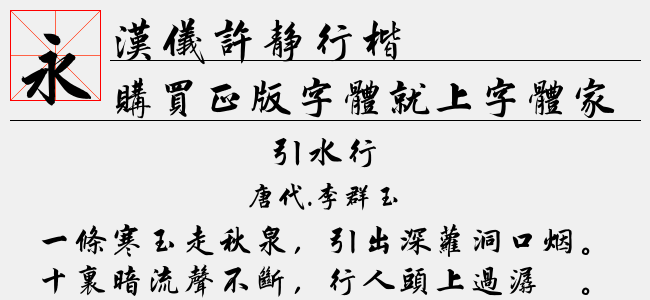 永
漢儀許静行楷
購買正版字體就上字體家
引水行
唐代.李群玉
一條寒玉走秋泉，引出深蘿洞口烟。
十裏暗流聲不斷，行人頭上過潺 。